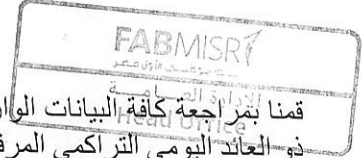 FABMISR
بنك أبوظبي الأول مصر
الإدارة العامة
Head Office
قمنا بمراجعة كافة البيانات الوار
ذو العائد اليومي التراكمي المرف